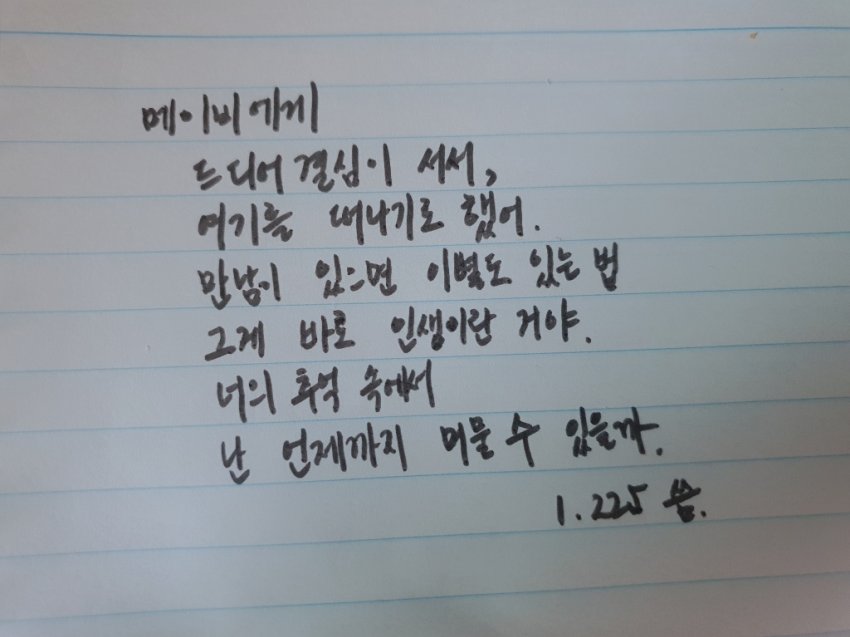 메이비에게
드디어 결심이 서서,
여기를 떠나기로 했어.
만남이 있으면 이별도 있는 법
그게 바로 인생이란 거야.
너의 추억 속에서
난 언제까지 머물 수 있을까.
1.225 씀.